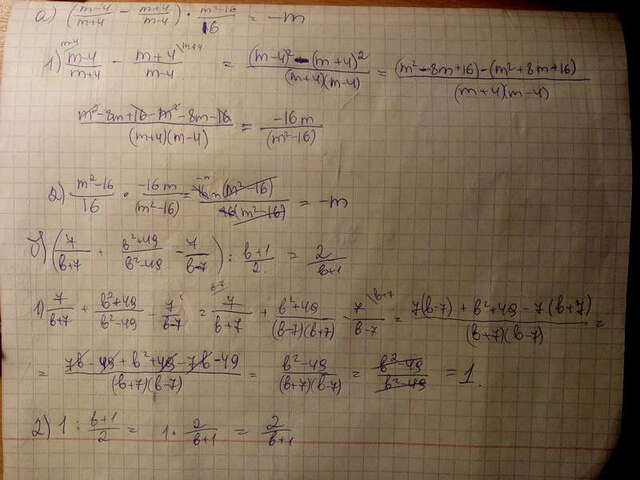 а) ((m-4)/(m+4) - (m+4)/(m-4)) · (m²-16)/16 = -m
1) (m-4)/(m+4) - (m+4)/(m-4) = ((m-4)² - (m+4)²)/((m+4)(m-4)) = ((m²-8m+16)-(m²+8m+16))/((m+4)(m-4))
(m²-8m+16-m²-8m-16)/((m+4)(m-4)) = (-16m)/((m²-16))
2) (m²-16)/16 · (-16m)/((m²-16)) = (-16m(m²-16))/(16(m²-16)) = -m
б) (7/(в+7) + (в²+49)/(в²-49) - 7/(в-7)) : (в+1)/2 = 2/(в+1)
1) 7/(в+7) + (в²+49)/(в²-49) - 7/(в-7) = 7/(в+7) + (в²+49)/((в-7)(в+7)) - 7/(в-7) = (7(в-7)+в²+49-7(в+7))/((в+7)(в-7)) =
= (7в-49+в²+49-7в-49)/((в+7)(в-7)) = (в²-49)/((в+7)(в-7)) = (в²-49)/(в²-49) = 1.
2) 1 : (в+1)/2 = 1 · 2/(в+1) = 2/(в+1)